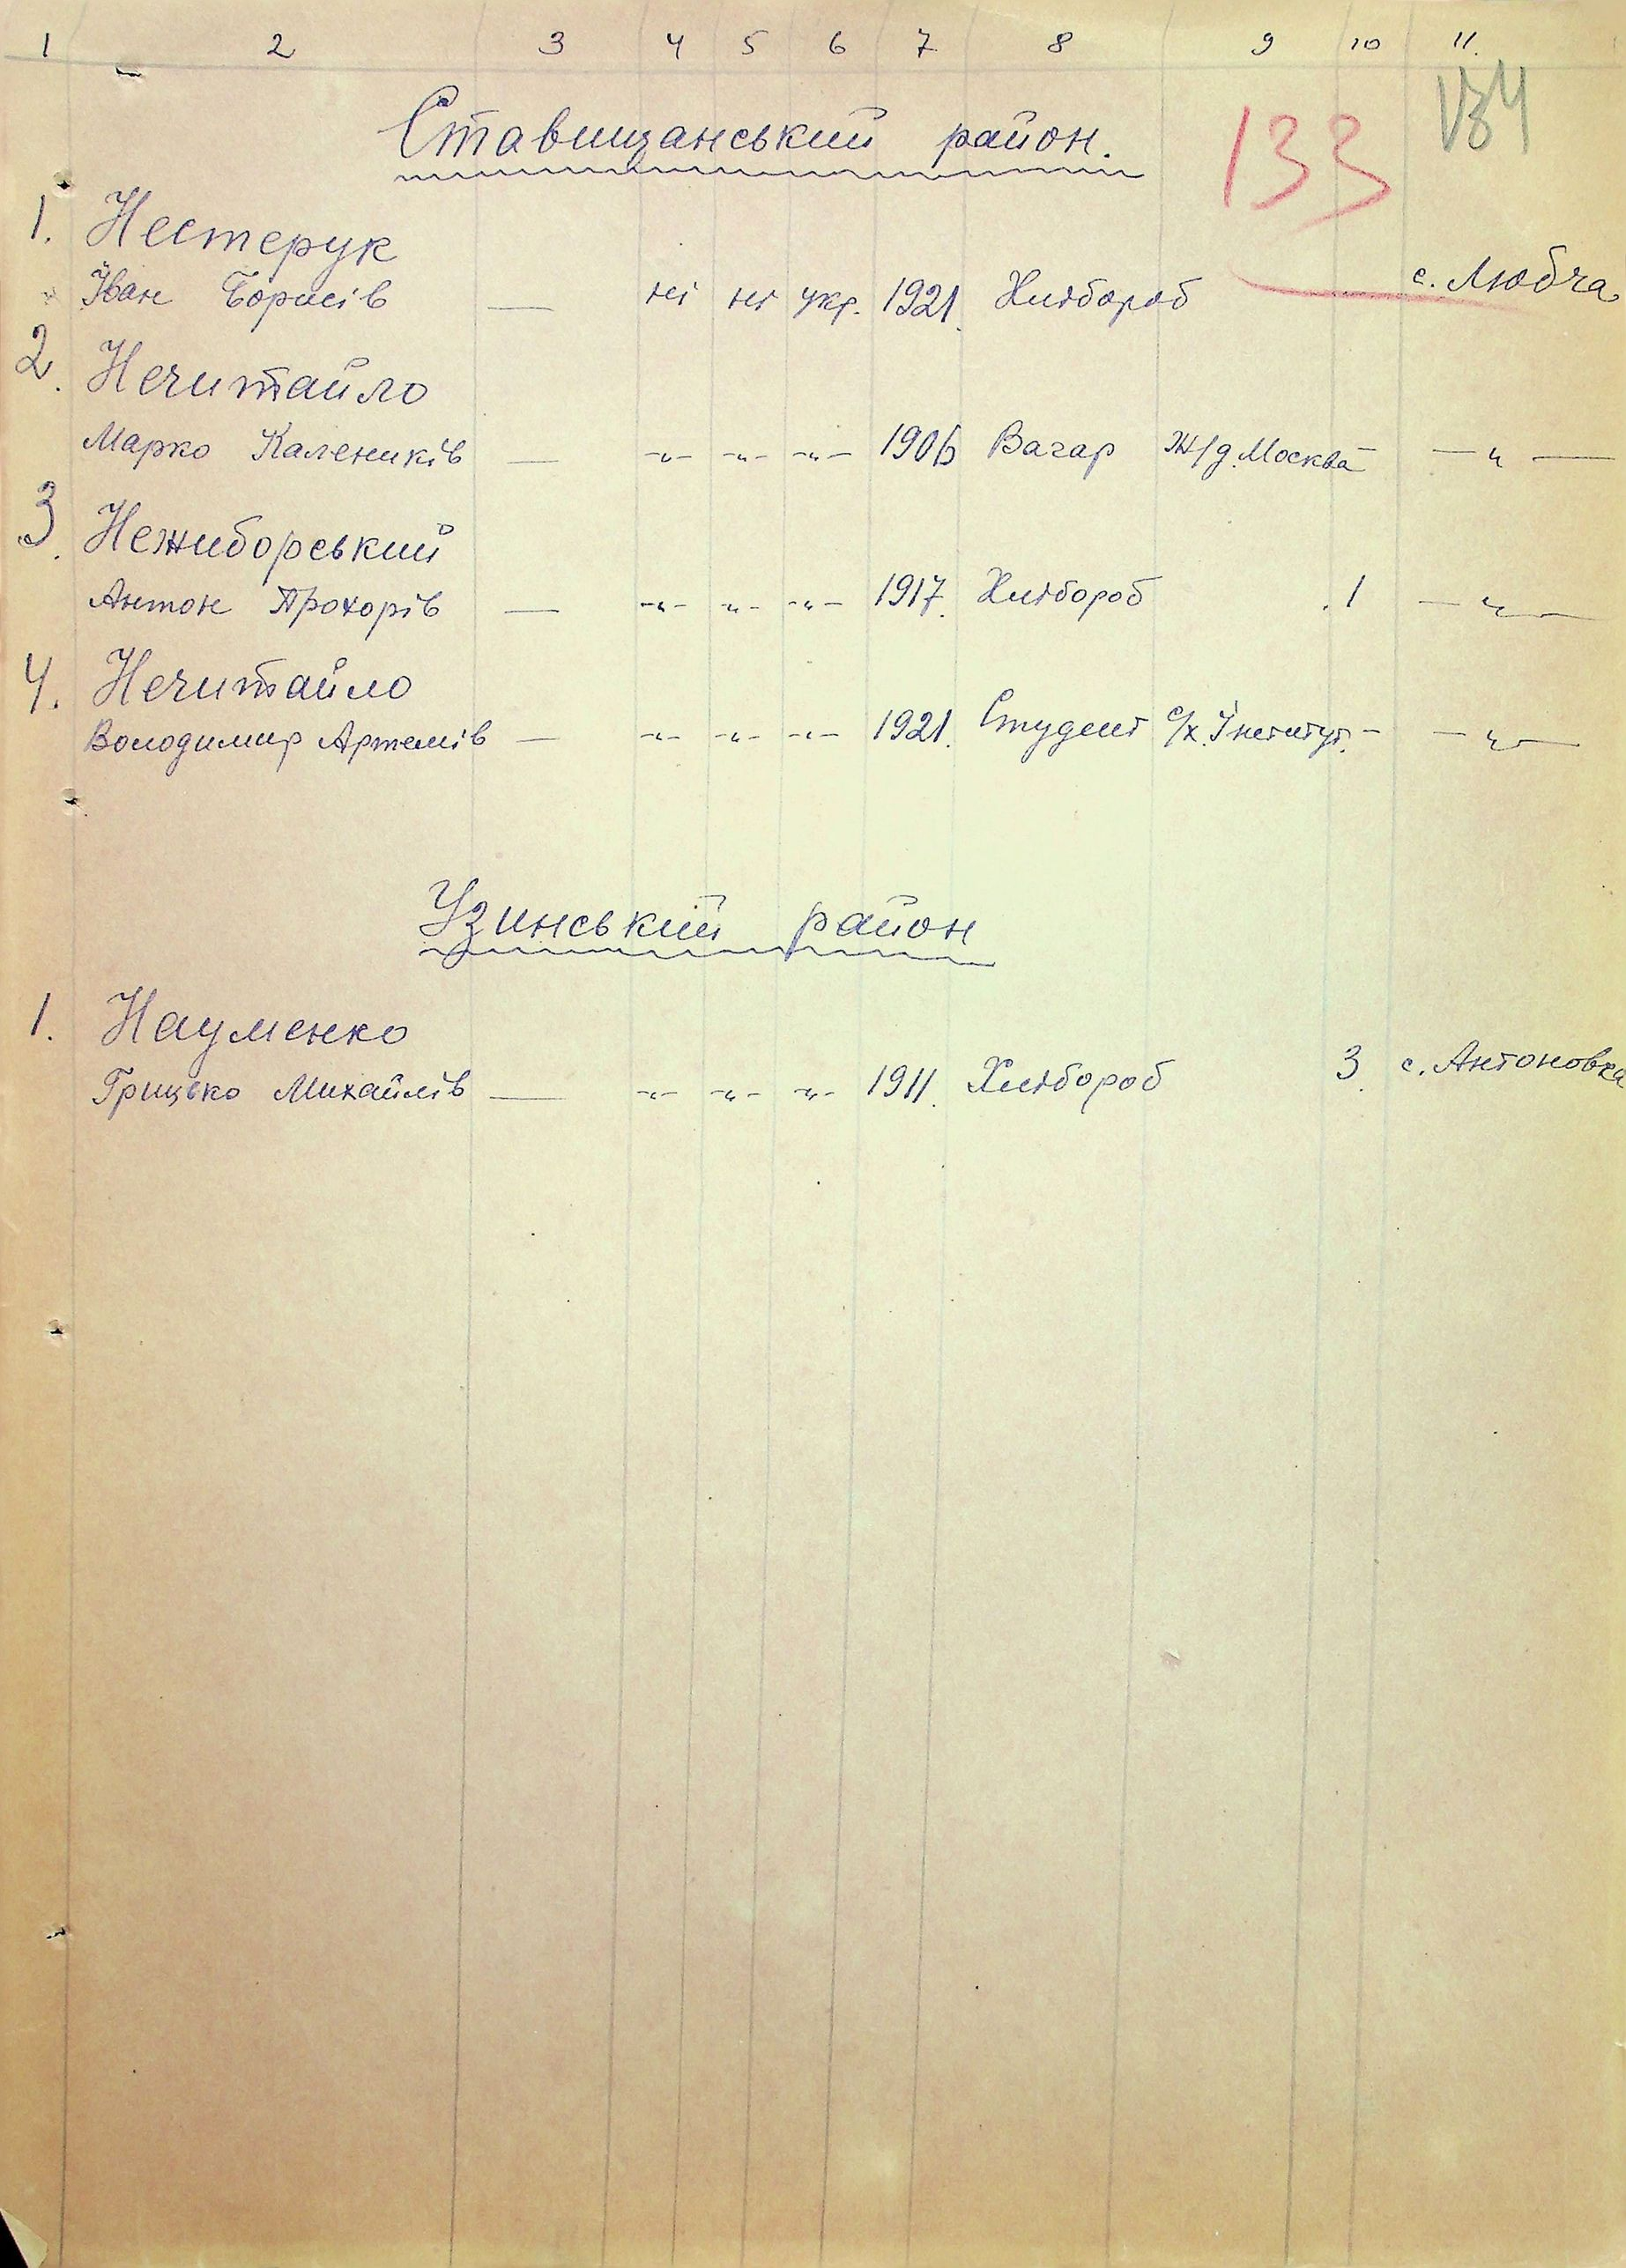 1 2 3 4 5 6 7 8 9 10 11.
Ставищанський район.
133 134
1. Нестерук
Іван Борисів — ні ні укр. 1921. Хлібороб с. Любча
2. Нечитайло
Марко Калеників — -"- -"- -"- 1906 Вагар Ж/д. Москва — " —
3. Нежиборський
Антон Прохорів — -"- -"- -"- 1917. Хлібороб 1 — " —
4. Нечитайло
Володимир Артемів — -"- -"- -"- 1921. Студент с/х. Інститут. - — " —
Узинський район
1. Науменко
Грицько Михайлів — -"- -"- -"- 1911. Хлібороб 3. с. Антоновка